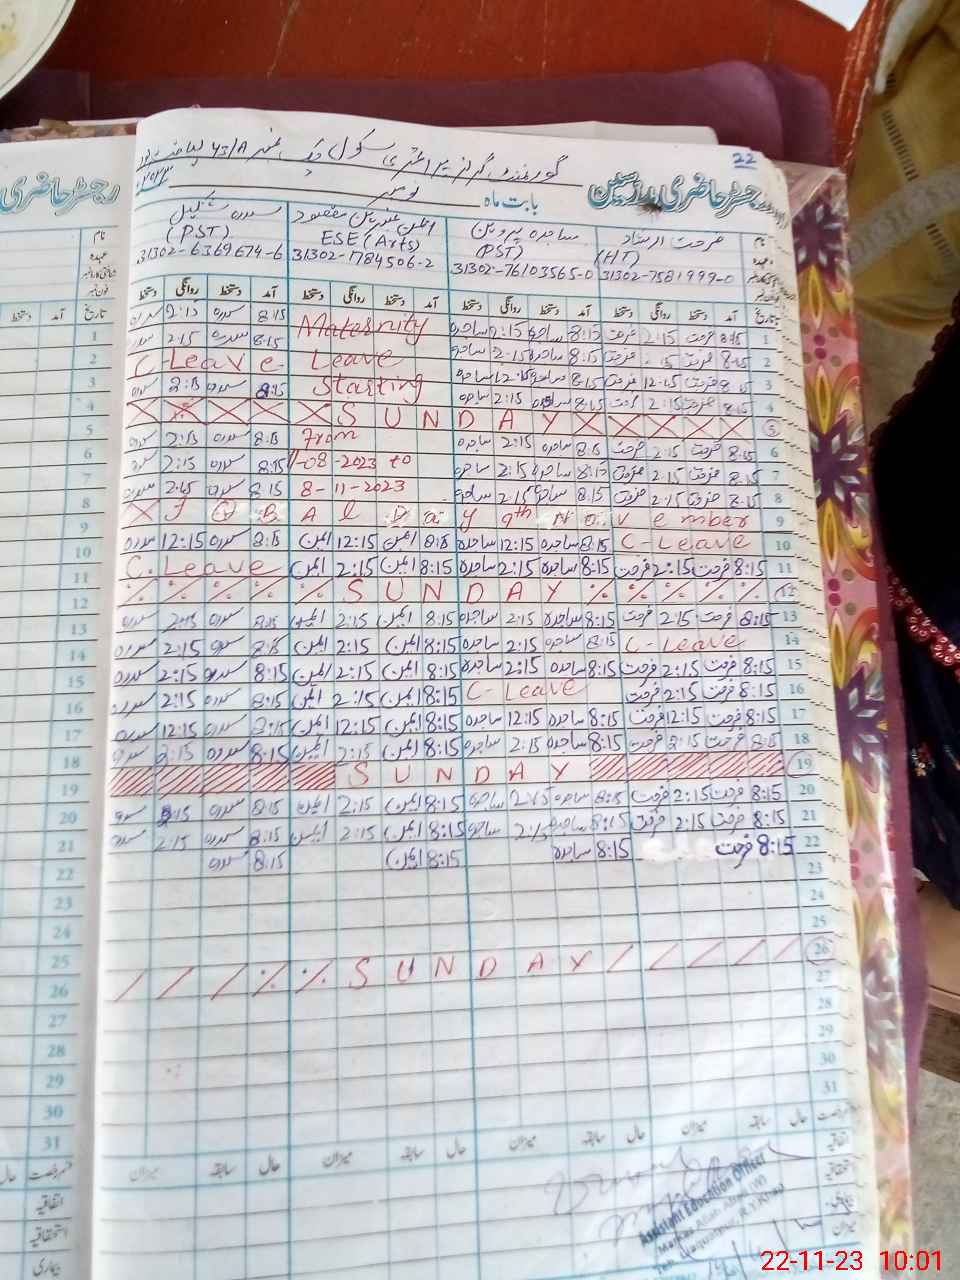 22
گورنمنٹ گرلز پرائمری سکول چک نمبر 43/A
رجسٹر حاضری مدرسین
بابت ماہ نومبر
رجسٹر حاضری
نام
عہدہ
فرحت
(HT)
31302-7581999-0
ساجدہ پروین
(PST)
31302-76103565-0
ESE (Arts)
31302-1784506-2
سدرہ شکیل
(PST)
31302-6369674-6
تاریخ آمد دستخط روانگی دستخط آمد دستخط روانگی دستخط آمد دستخط روانگی دستخط آمد دستخط روانگی دستخط
1 8:15 فرحت 2:15 فرحت 8:15 ساجدہ 2:15 ساجدہ Maternity 8:15 سدرہ 2:15 سدرہ
2 8:15 فرحت 2:15 فرحت 8:15 ساجدہ 2:15 ساجدہ Leave 8:15 سدرہ 2:15 سدرہ
3 8:15 فرحت 12:15 فرحت 8:15 ساجدہ 12:15 ساجدہ Starting C-Leave
4 8:15 فرحت 2:15 فرحت 8:15 ساجدہ 2:15 ساجدہ 8:15 سدرہ 2:15 سدرہ
5 SUNDAY
6 8:15 فرحت 2:15 فرحت 8:15 ساجدہ 2:15 ساجدہ From 8:15 سدرہ 2:15 سدرہ
7 8:15 فرحت 2:15 فرحت 8:15 ساجدہ 2:15 ساجدہ -08-2023 to 8:15 سدرہ 2:15 سدرہ
8 8:15 فرحت 2:15 فرحت 8:15 ساجدہ 2:15 ساجدہ 8-11-2023 8:15 سدرہ 2:15 سدرہ
9 IQBAl Day 9th November
10 C-Leave 8:15 ساجدہ 12:15 ساجدہ 8:15 ایمن 12:15 ایمن 8:15 سدرہ 12:15 سدرہ
11 8:15 فرحت 2:15 فرحت 8:15 ساجدہ 2:15 ساجدہ 8:15 ایمن 2:15 ایمن C.Leave
12 SUNDAY
13 8:15 فرحت 2:15 فرحت 8:15 ساجدہ 2:15 ساجدہ 8:15 ایمن 2:15 ایمن 8:15 سدرہ 2:15 سدرہ
14 C-Leave 8:15 ساجدہ 2:15 ساجدہ 8:15 ایمن 2:15 ایمن 8:15 سدرہ 2:15 سدرہ
15 8:15 فرحت 2:15 فرحت 8:15 ساجدہ 2:15 ساجدہ 8:15 ایمن 2:15 ایمن 8:15 سدرہ 2:15 سدرہ
16 8:15 فرحت 2:15 فرحت C-Leave 8:15 ایمن 2:15 ایمن 8:15 سدرہ 2:15 سدرہ
17 8:15 فرحت 12:15 فرحت 8:15 ساجدہ 12:15 ساجدہ 8:15 ایمن 12:15 ایمن 8:15 سدرہ 12:15 سدرہ
18 8:15 فرحت 2:15 فرحت 8:15 ساجدہ 2:15 ساجدہ 8:15 ایمن 2:15 ایمن 8:15 سدرہ 2:15 سدرہ
19 SUNDAY
20 8:15 فرحت 2:15 فرحت 8:15 ساجدہ 2:15 ساجدہ 8:15 ایمن 2:15 ایمن 8:15 سدرہ 2:15 سدرہ
21 8:15 فرحت 2:15 فرحت 8:15 ساجدہ 2:15 ساجدہ 8:15 ایمن 2:15 ایمن 8:15 سدرہ 2:15 سدرہ
22 8:15 فرحت 8:15 ساجدہ 8:15 ایمن 8:15 سدرہ
23
24
25
26 SUNDAY
27
28
29
30
31
حال سابقہ میزان حال سابقہ میزان حال سابقہ میزان حال سابقہ میزان
اتفاقیہ
استحقاقیہ
بیماری
میزان
Assistant Education Officer
22-11-23 10:01